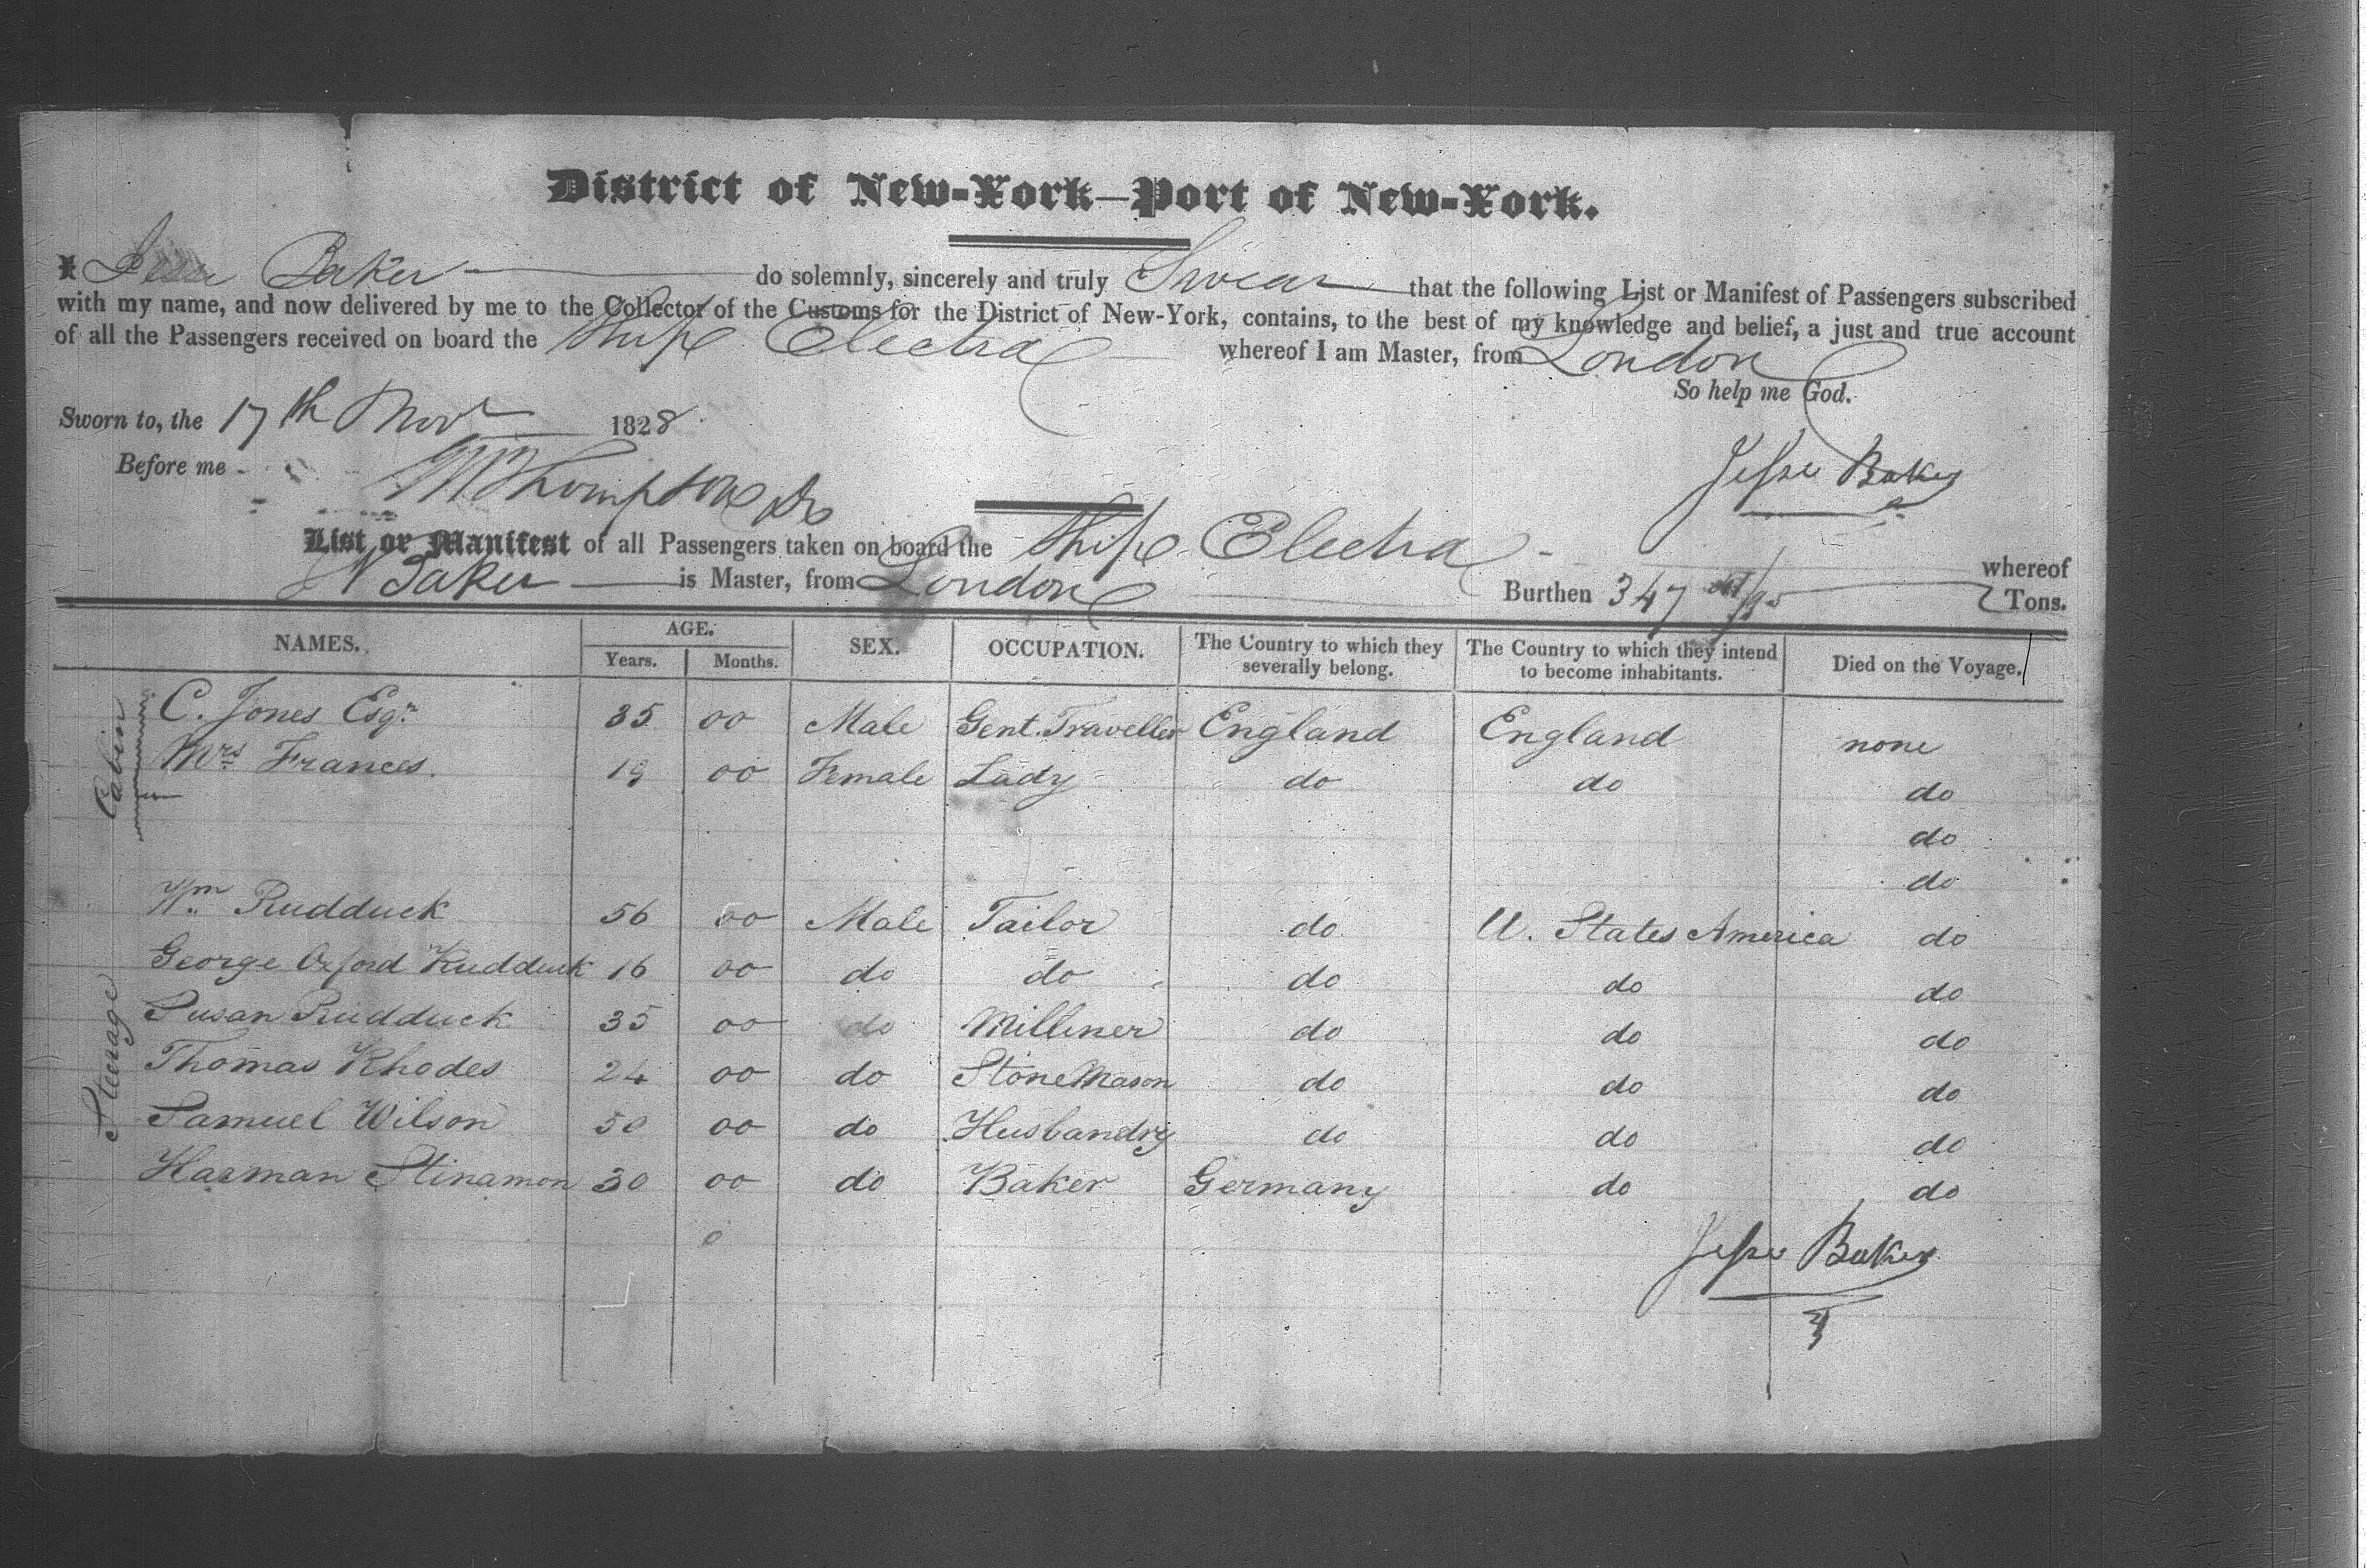 District of New-York—Port of New-York.
I Jesse Baker do solemnly, sincerely and truly Swear that the following List or Manifest of Passengers subscribed
with my name, and now delivered by me to the Collector of the Customs for the District of New-York, contains, to the best of my knowledge and belief, a just and true account
of all the Passengers received on board the Ship Electra whereof I am Master, from London
So help me God.
Sworn to, the 17th Novr 1828.
Before me
Thompson
Jesse Baker
List or Manifest of all Passengers taken on board the Ship Electra whereof
Baker is Master, from London Burthen 347 /95 Tons.
NAMES. AGE. SEX. OCCUPATION. The Country to which they severally belong. The Country to which they intend to become inhabitants. Died on the Voyage.
Years. Months.
Cabin
C. Jones Esqr. 35 00 Male Gent. Traveller England England none
Mrs Frances. 19 00 Female Lady do do do
do
do
Steerage
Wm. Rudduck 56 00 Male Tailor do U. States America do
George Oxford Rudduck 16 00 do do do do do
Susan Rudduck 35 00 do Milliner do do do
Thomas Rhodes 24 00 do Stone Mason do do do
Samuel Wilson 50 00 do Husbandry do do do
Harman Stinamon 30 00 do Baker Germany do do
0
Jesse Baker